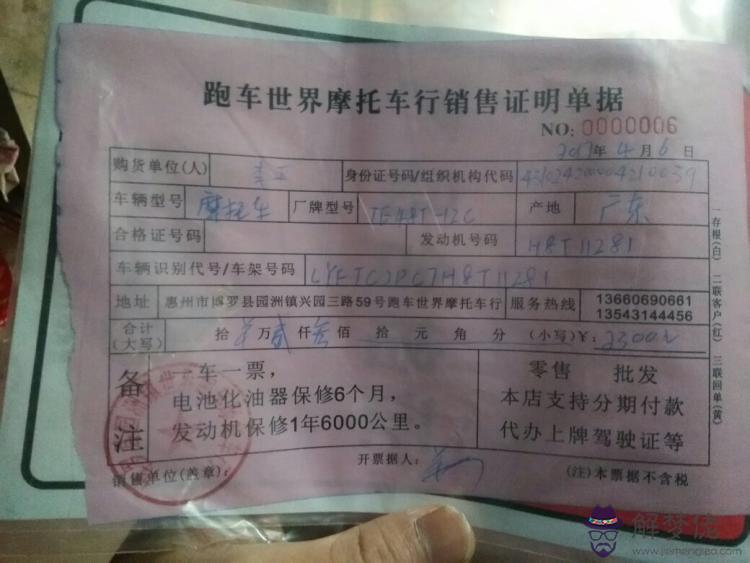 跑车世界摩托车行销售证明单据
NO: 0000006
2017年4月6日
购货单位(人) 身份证号码/组织机构代码
车辆型号 摩托车 厂牌型号 产地 广东
合格证号码 发动机号码 H8T11281
车辆识别代号/车架号码
地址 惠州市博罗县园洲镇兴园三路59号跑车世界摩托车行 服务热线 13660690661
13543144456
合计(大写) 拾 万贰仟叁佰 拾 元 角 分 (小写)¥: 2300
备注
一车一票,
电池化油器保修6个月,
发动机保修1年6000公里。
零售 批发
本店支持分期付款
代办上牌驾驶证等
销售单位(盖章): 开票据人: (注)本票据不含税
一存根(白) 二联客户(红) 三联回单(黄)
解梦佬
www.jiemenglao.com